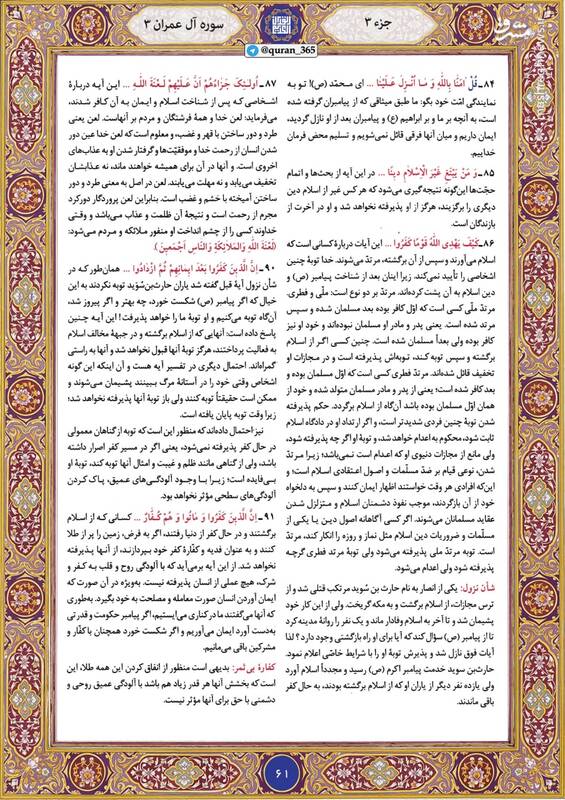 جزء ۳
سوره آل عمران ۳
@quran_365
۸۴ـ قُلْ آمَنَّا بِاللَّهِ وَ مَا أُنْزِلَ عَلَيْنَا ... ای محمّد (ص)! تو به
نمایندگی امّت خود بگو: ما طبق میثاقی که از پیامبران گرفته شده
است، به آنچه بر ما و بر ابراهیم (ع) و پیامبران بعد از او نازل گردید،
ایمان داریم و میان آنها فرقی قائل نمی‌شویم و تسلیم محض فرمان
خداییم.
۸۵ـ وَ مَنْ يَبْتَغِ غَيْرَ الْإِسْلَامِ دِينًا ... در این آیه از بحث‌ها و اتمام
حجّت‌ها این‌گونه نتیجه‌گیری می‌شود که هر کس غیر از اسلام دین
دیگری را برگزیند، هرگز از او پذیرفته نخواهد شد و او در آخرت از
بازندگان است.
۸۶ـ كَيْفَ يَهْدِي اللَّهُ قَوْمًا كَفَرُوا ... این آیات دربارهٔ کسانی است که
اسلام می‌آورند و سپس از آن برگشته، مرتد می‌شوند. خدا توبهٔ چنین
اشخاصی را تأیید نمی‌کند، زیرا اینان بعد از شناخت پیامبر (ص) و
دین اسلام به آن پشت کرده‌اند. مرتدّ بر دو نوع است: ملّی و فطری.
مرتدّ ملّی کسی است که اوّل کافر بوده بعد مسلمان شده و سپس
مرتد شده است. یعنی پدر و مادر او مسلمان نبوده‌اند و خود او نیز
کافر بوده ولی بعداً مسلمان شده است. چنین کسی اگر از اسلام
برگشته و سپس توبه کند، توبه‌اش پذیرفته است و در مجازات او
تخفیف قائل شده‌اند. مرتدّ فطری کسی است که اوّل مسلمان بوده و
بعد کافر شده است؛ یعنی از پدر و مادر مسلمان متولد شده و خود از
همان اوّل مسلمان بوده باشد آن‌گاه از اسلام برگردد. حکم پذیرفته
شدن توبهٔ چنین فردی شدیدتر است، و اگر ارتداد او در دادگاه اسلام
ثابت شود، محکوم به اعدام خواهد شد، و توبهٔ او اگر چه پذیرفته شود،
ولی مانع از مجازات دنیوی او که اعدام است نمی‌باشد؛ زیرا مرتدّ
شدن، نوعی قیام بر ضدّ مسلّمات و اصول اعتقادی اسلام است؛ و
این‌که افرادی هر وقت خواستند اظهار ایمان کنند و سپس به دلخواه
خود از آن بازگردند، موجب نفوذ دشمنان اسلام و متزلزل شدن
عقاید مسلمانان می‌شوند. اگر کسی آگاهانه اصول دین یا یکی از
مسلّمات و ضروریات دین اسلام مثل نماز و روزه را انکار کند، مرتدّ
است. توبه مرتدّ ملی پذیرفته می‌شود ولی توبهٔ مرتد فطری گرچه
پذیرفته شود ولی اعدام می‌شود.
شأن نزول: یکی از انصار به نام حارث بن سُوید مرتکب قتلی شد و از
ترس مجازات، از اسلام برگشت و به مکه گریخت. ولی از این کار خود
پشیمان شد و تا آخر به اسلام وفادار ماند و یک نفر را روانهٔ مدینه کرد
تا از پیامبر (ص) سؤال کند که آیا برای او راه بازگشتی وجود دارد؟ لذا
آیات فوق نازل شد و پذیرش توبهٔ او را با شرایط خاصّی اعلام نمود.
حارث‌بن سوید خدمت پیامبر اکرم (ص) رسید و مجدداً اسلام آورد
ولی یازده نفر دیگر از یاران او که از اسلام برگشته بودند، به حال کفر
باقی ماندند.
۸۷ـ أُولَٰئِكَ جَزَاؤُهُمْ أَنَّ عَلَيْهِمْ لَعْنَةَ اللَّهِ ... این آیه دربارهٔ
اشخاصی که پس از شناخت اسلام و ایمان به آن کافر شدند،
می‌فرماید: لعن خدا و همهٔ فرشتگان و مردم بر آنهاست. لعن یعنی
طرد و دور ساختن با قهر و غضب، و معلوم است که لعن خدا عین دور
شدن انسان از رحمت خدا و موفقیّت‌ها و گرفتار شدن او به عذاب‌های
اخروی است. و آنها در آن برای همیشه خواهند ماند، نه عذابشان
تخفیف می‌یابد و نه مهلت می‌یابند. لعن در اصل به معنی طرد و دور
ساختن آمیخته با خشم و غضب است. بنابراین لعن پروردگار دورکرد
مجرم از رحمت است و نتیجهٔ آن ظلمت و عذاب می‌باشد و وقتی
خداوند کسی را از چشم انداخت او منفور ملائکه و مردم می‌شود:
(لَعْنَةَ اللَّهِ وَالْمَلَائِكَةِ وَالنَّاسِ أَجْمَعِينَ).
۹۰ـ إِنَّ الَّذِينَ كَفَرُوا بَعْدَ إِيمَانِهِمْ ثُمَّ ازْدَادُوا ... همان‌طور که در
شأن نزول آیهٔ قبل گفته شد یاران حارث‌بن‌سُوَید توبه نکردند به این
خیال که اگر پیامبر (ص) شکست خورد، چه بهتر و اگر پیروز شد،
آن‌گاه توبه می‌کنیم و او توبهٔ ما را خواهد پذیرفت! این آیه چنین
پاسخ داده است: آنهایی که از اسلام برگشته و در جبههٔ مخالف اسلام
به فعالیت پرداختند، هرگز توبهٔ آنها قبول نخواهد شد و آنها به راستی
گمراه‌اند. احتمال دیگری در تفسیر آیه هست و آن اینکه این گونه
اشخاص وقتی خود را در آستانهٔ مرگ ببینند پشیمان می‌شوند و
ممکن است حقیقتاً توبه کنند ولی باز توبهٔ آنها پذیرفته نخواهد شد؛
زیرا وقت توبه پایان یافته است.
نیز احتمال داده‌اند که منظور این است که توبه از گناهان معمولی
در حال کفر پذیرفته نمی‌شود، یعنی اگر در مسیر کفر اصرار داشته
باشد، ولی از گناهی مانند ظلم و غیبت و امثال آنها توبه کند، توبهٔ او
بی‌فایده است؛ زیرا با وجود آلودگی‌های عمیق، پاک کردن
آلودگی‌های سطحی مؤثر نخواهد بود.
۹۱ـ إِنَّ الَّذِينَ كَفَرُوا وَ مَاتُوا وَ هُمْ كُفَّارٌ ... کسانی که از اسلام
برگشتند و در حال کفر از دنیا رفتند، اگر به فرض، زمین را پر از طلا
کنند و به عنوان فدیه و کفّارهٔ کفر خود بپردازند، از آنها پذیرفته
نخواهد شد. از این آیه برمی‌آید که با آلودگی روح و قلب به کفر و
شرک، هیچ عملی از انسان پذیرفته نیست. به‌ویژه در آن صورت که
ایمان آوردن انسان صورت معامله و مصلحت به خود بگیرد. به‌طوری
که آنها می‌گفتند ما در کناری می‌ایستیم، اگر پیامبر حکومت و قدرتی
به‌دست آورد ایمان می‌آوریم و اگر شکست خورد همچنان با کفّار و
مشرکین باقی می‌مانیم.
کفارهٔ بی‌ثمر: بدیهی است منظور از انفاق کردن این همه طلا، این
است که بخشش آنها هر قدر زیاد هم باشد با آلودگی عمیق روحی و
دشمنی با حق برای آنها مؤثر نیست.
۶۱